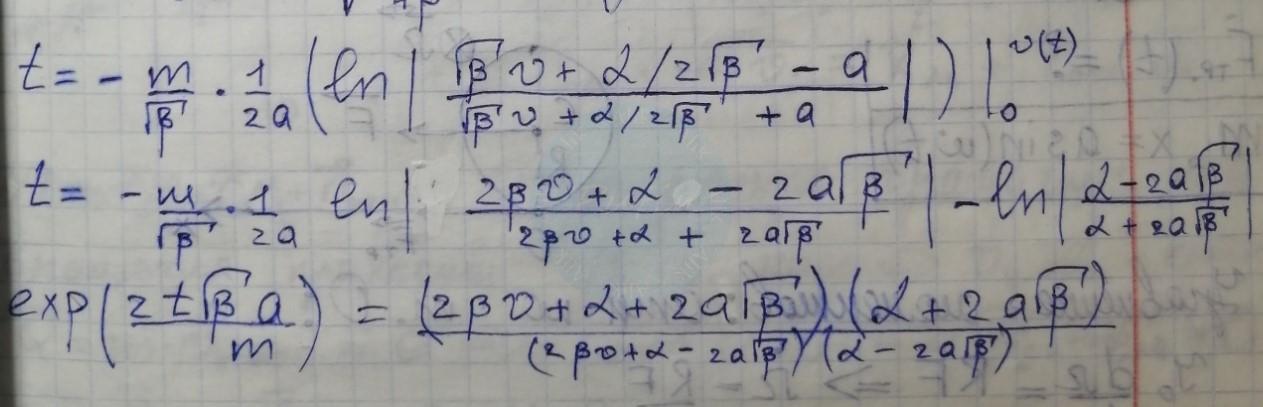 t = - \frac{m}{\sqrt{β}} \cdot \frac{1}{2a} ( ln | \frac{\sqrt{β} v + α/2\sqrt{β} - a}{\sqrt{β} v + α/2\sqrt{β} + a} | ) |_0^{v(t)}
t = - \frac{m}{\sqrt{β}} \cdot \frac{1}{2a} ln | \frac{2βv + α - 2a\sqrt{β}}{2βv + α + 2a\sqrt{β}} | - ln | \frac{α - 2a\sqrt{β}}{α + 2a\sqrt{β}} |
exp( \frac{2t\sqrt{β}a}{m} ) = \frac{(2βv + α + 2a\sqrt{β})(α + 2a\sqrt{β})}{(2βv + α - 2a\sqrt{β})(α - 2a\sqrt{β})}